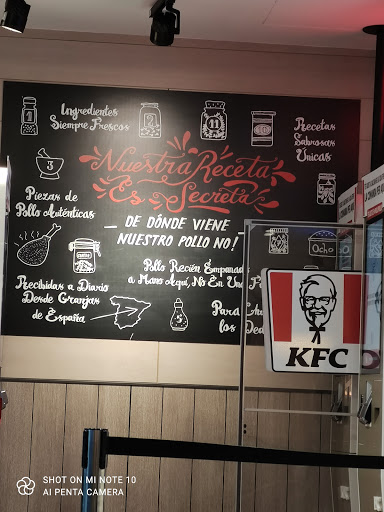 Ingredientes
Siempre Frescos
11
Recetas
Sabrosas
Únicas
3
Nuestra Receta
Es Secreta
DE DÓNDE VIENE
NUESTRO POLLO NO!
Piezas de
Pollo Auténticas
Ocho
Pollo Recién Empanado
a Mano Aquí, No En Una
Recibidas a Diario
Desde Granjas
de España
5
Para
los
KFC
SHOT ON MI NOTE 10
AI PENTA CAMERA